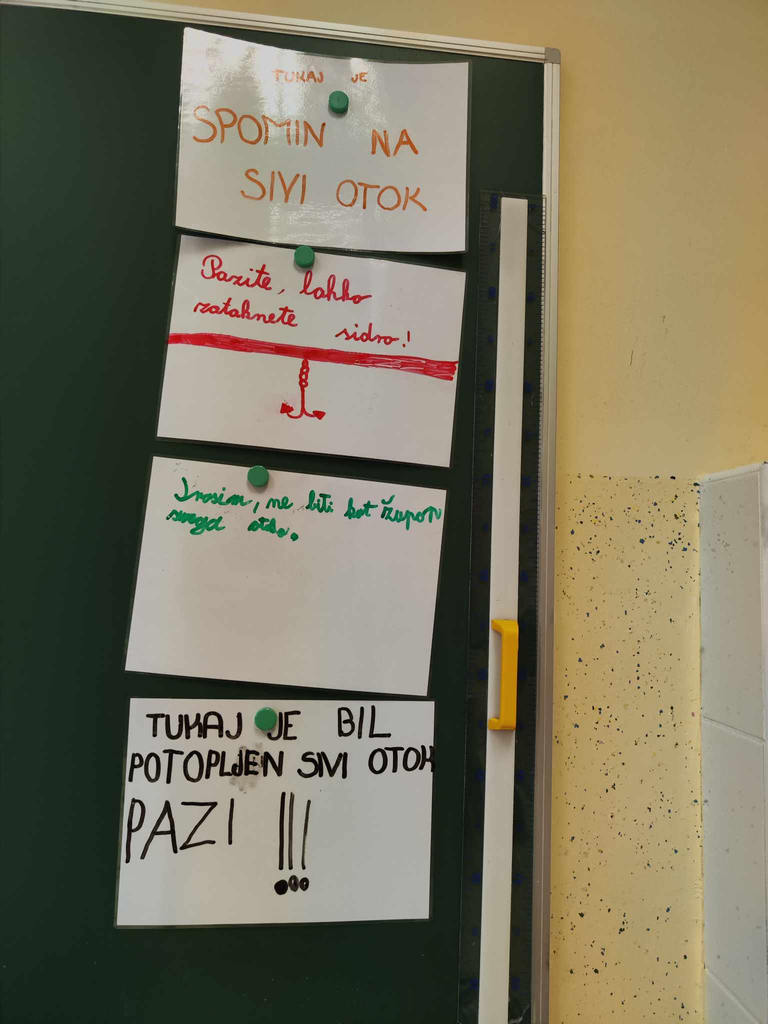 TUKAJ JE
SPOMIN NA
SIVI OTOK
Pazite, lahko
zataknete sidro!
Prosim, ne biti kot župan
svojga otka.
TUKAJ JE BIL
POTOPLJEN SIVI OTOK
PAZI !!!